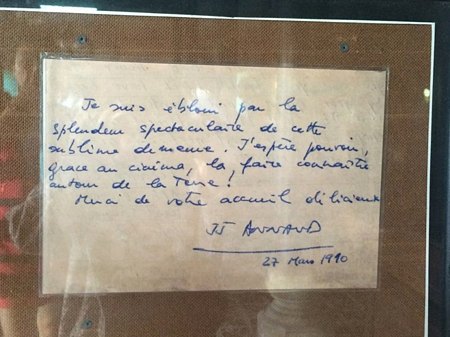 Je suis ébloui par la
splendeur spectaculaire de cette
sublime demeure. J'espère pouvoir,
grace au cinéma, la faire connaître
autour de la Terre !
Merci de votre accueil délicieux
JJ ANNAUD
27 Mars 1990